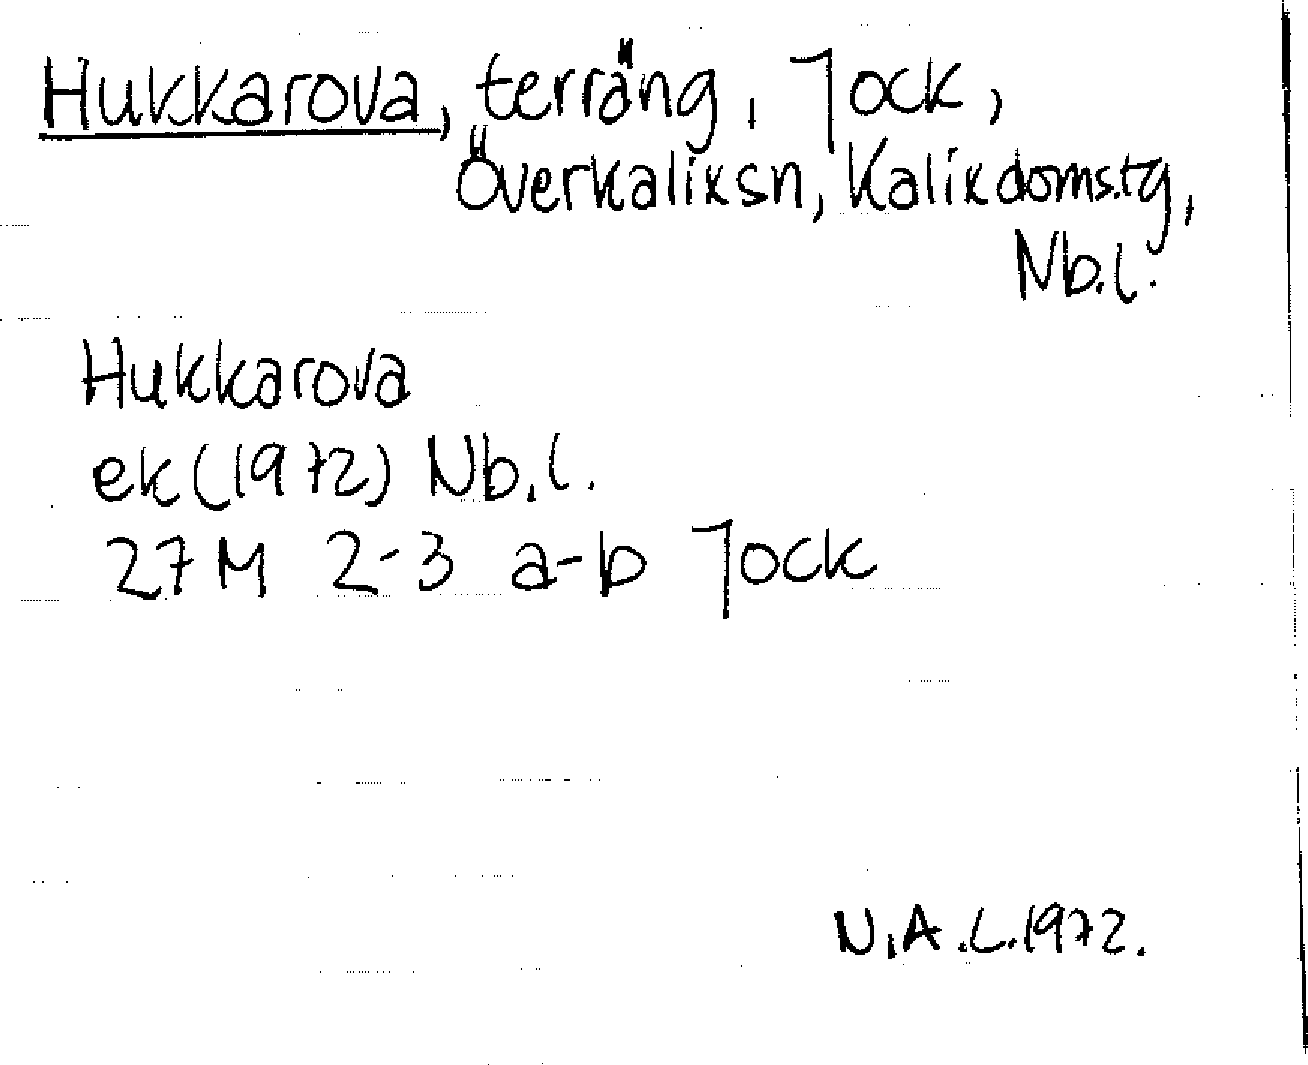 Hukkarova, terräng, Jock,
Överkalixsn, Kalixdomstg,
Nb.l.
Hukkarova
ek(1972) Nb.l.
27M 2-3 a-b Jock
N.A.L.1972.